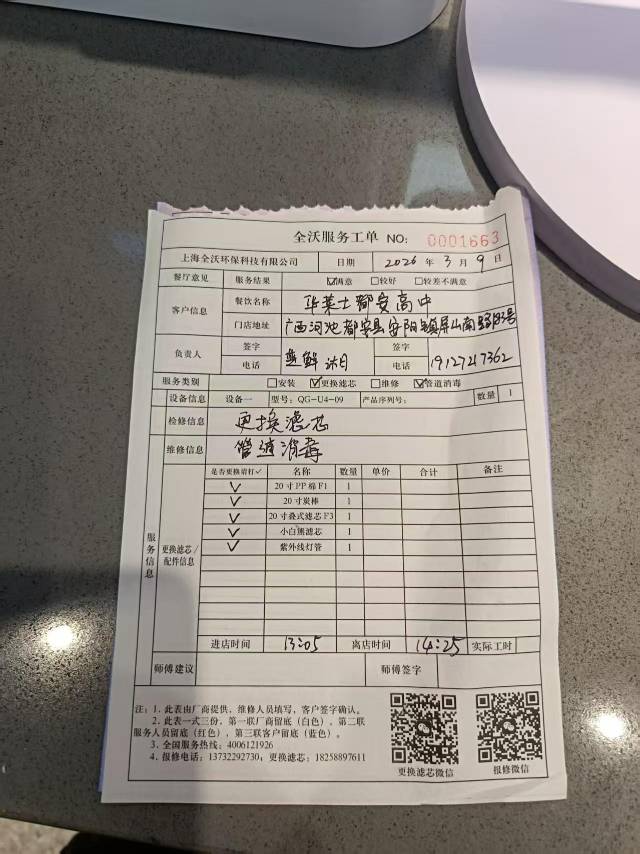 全沃服务工单 NO: 0001663
上海全沃环保科技有限公司 日期 2026 年 3 月 9 日
餐厅意见 服务结果 ☑满意 □较好 □较差不满意
客户信息 餐饮名称 华莱士都安高中
门店地址 广西河池都安县安阳镇屏山南路183号
负责人 签字 签字
电话 电话 19127247362
服务类别 □安装 ☑更换滤芯 □维修 ☑管道消毒
设备信息 设备一 型号: QG-U4-09 产品序列号: 数量 1
检修信息 更换滤芯
维修信息 管道消毒
服务信息
更换滤芯/配件信息
是否更换请打✓ 名称 数量 单价 合计 备注
✓ 20寸PP棉F1 1
✓ 20寸炭棒 1
✓ 20寸叠式滤芯F3 1
✓ 小白熊滤芯 1
✓ 紫外线灯管 1
进店时间 13:05 离店时间 14:25 实际工时
师傅建议 师傅签字
注: 1. 此表由厂商提供、维修人员填写, 客户签字确认。
2. 此表一式三份, 第一联厂商留底 (白色), 第二联
服务人员留底 (红色), 第三联客户留底 (蓝色)。
3. 全国服务热线: 4006121926
4. 报修电话: 13732292730; 更换滤芯: 18258897611
更换滤芯微信 报修微信